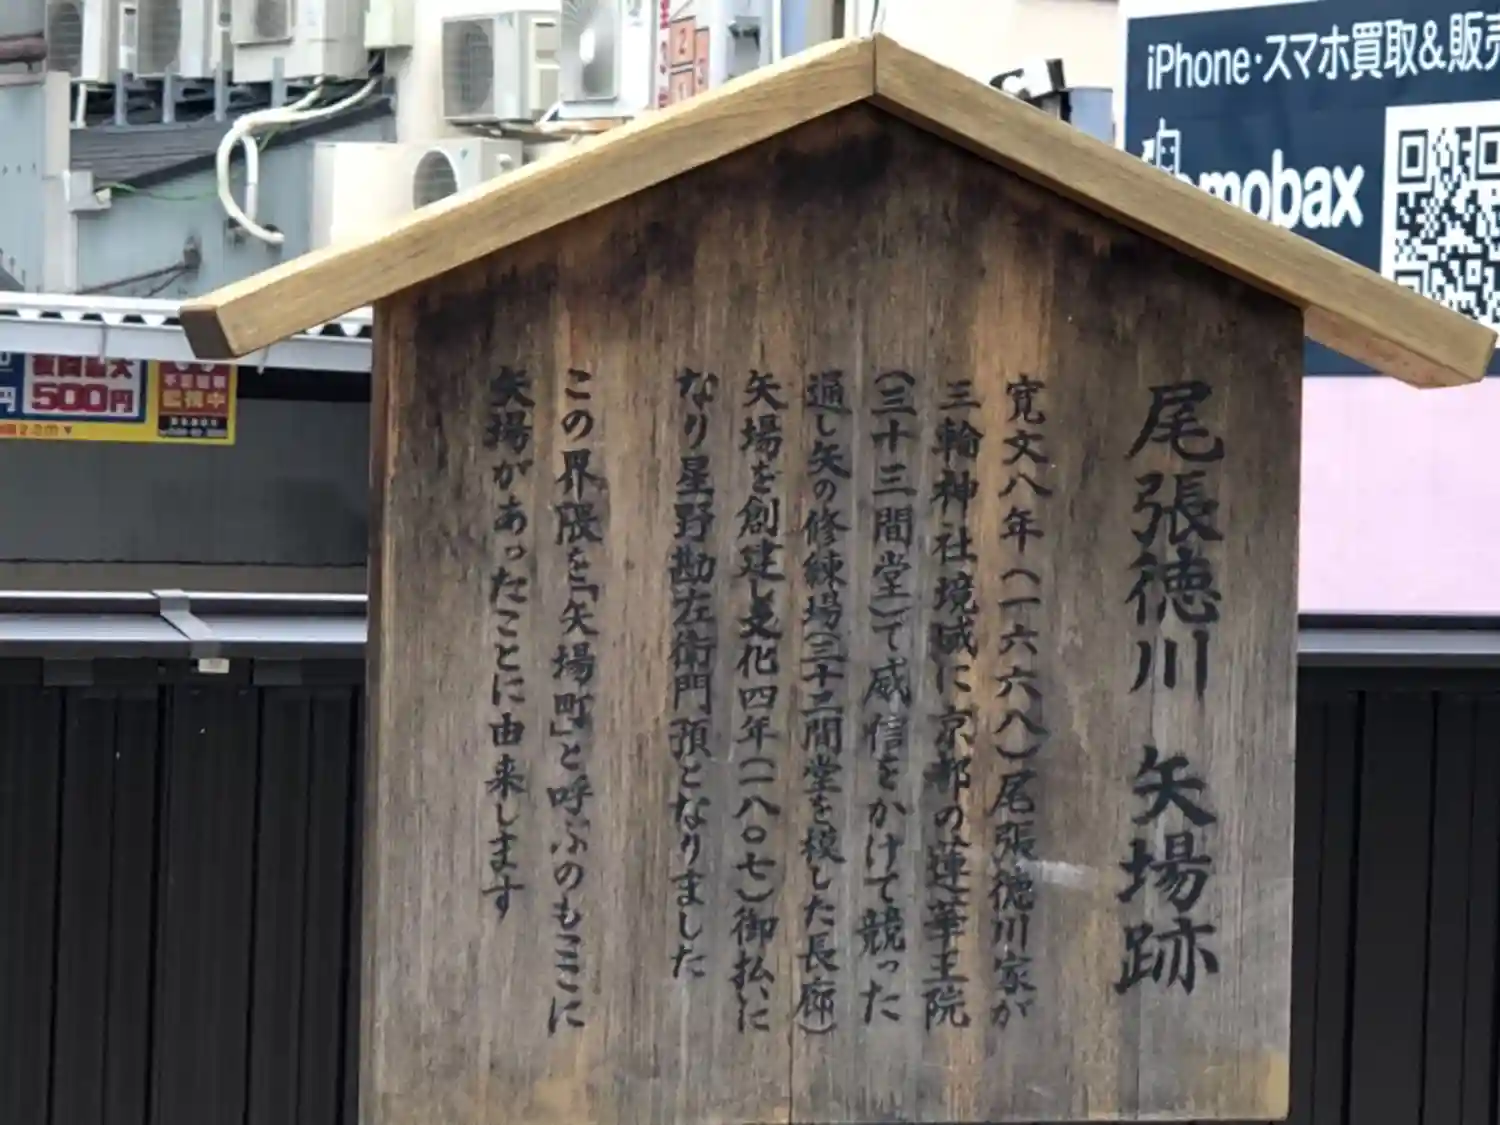 尾張徳川 矢場跡
寛文八年(一六六八)尾張徳川家が
三輪神社境域に京都の蓮華王院
(三十三間堂)で威信をかけて競った
通し矢の修練場(三十三間堂を模した長廊)
矢場を創建し文化四年(一八〇七)御払いに
なり星野勘左衛門預となりました
この界隈を「矢場町」と呼ぶのもここに
矢場があったことに由来します
iPhone・スマホ買取&販売
mobax
500円